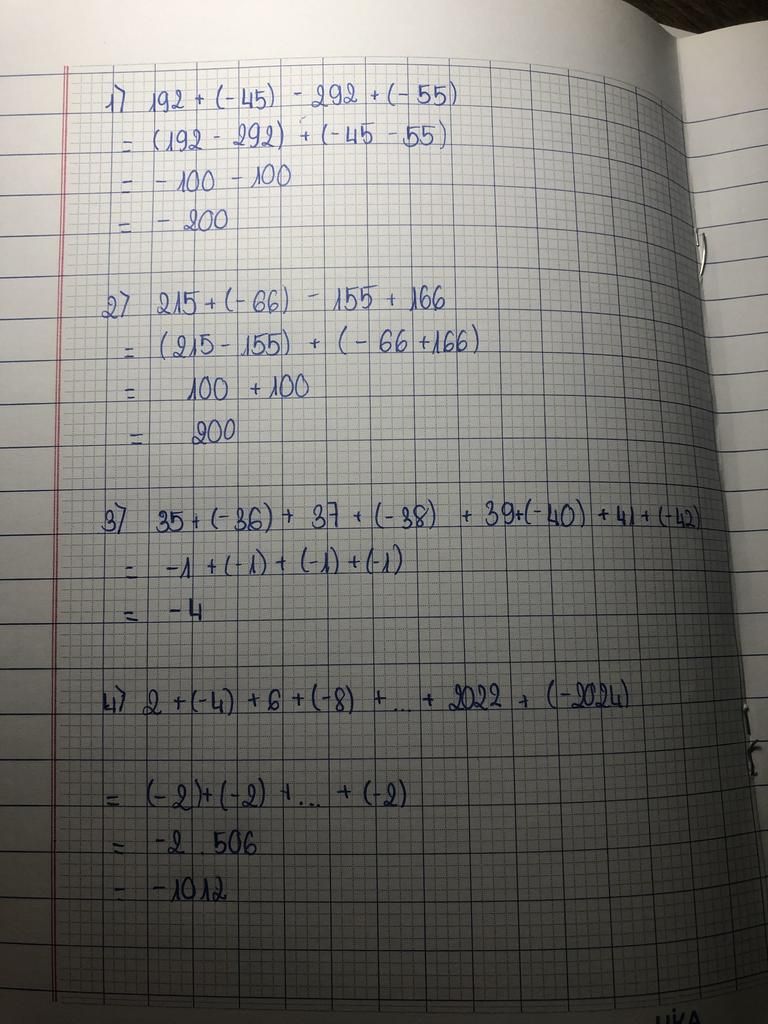 1) 192 + (-45) - 292 + (-55)
= (192 - 292) + (-45 - 55)
= - 100 - 100
= - 200
2) 215 + (-66) - 155 + 166
= (215 - 155) + (- 66 + 166)
= 100 + 100
= 200
3) 35 + (-36) + 37 + (-38) + 39 + (-40) + 41 + (-42)
= -1 + (-1) + (-1) + (-1)
= -4
4) 2 + (-4) + 6 + (-8) + ... + 2022 + (-2024)
= (-2) + (-2) + ... + (-2)
= -2 506
= -1012